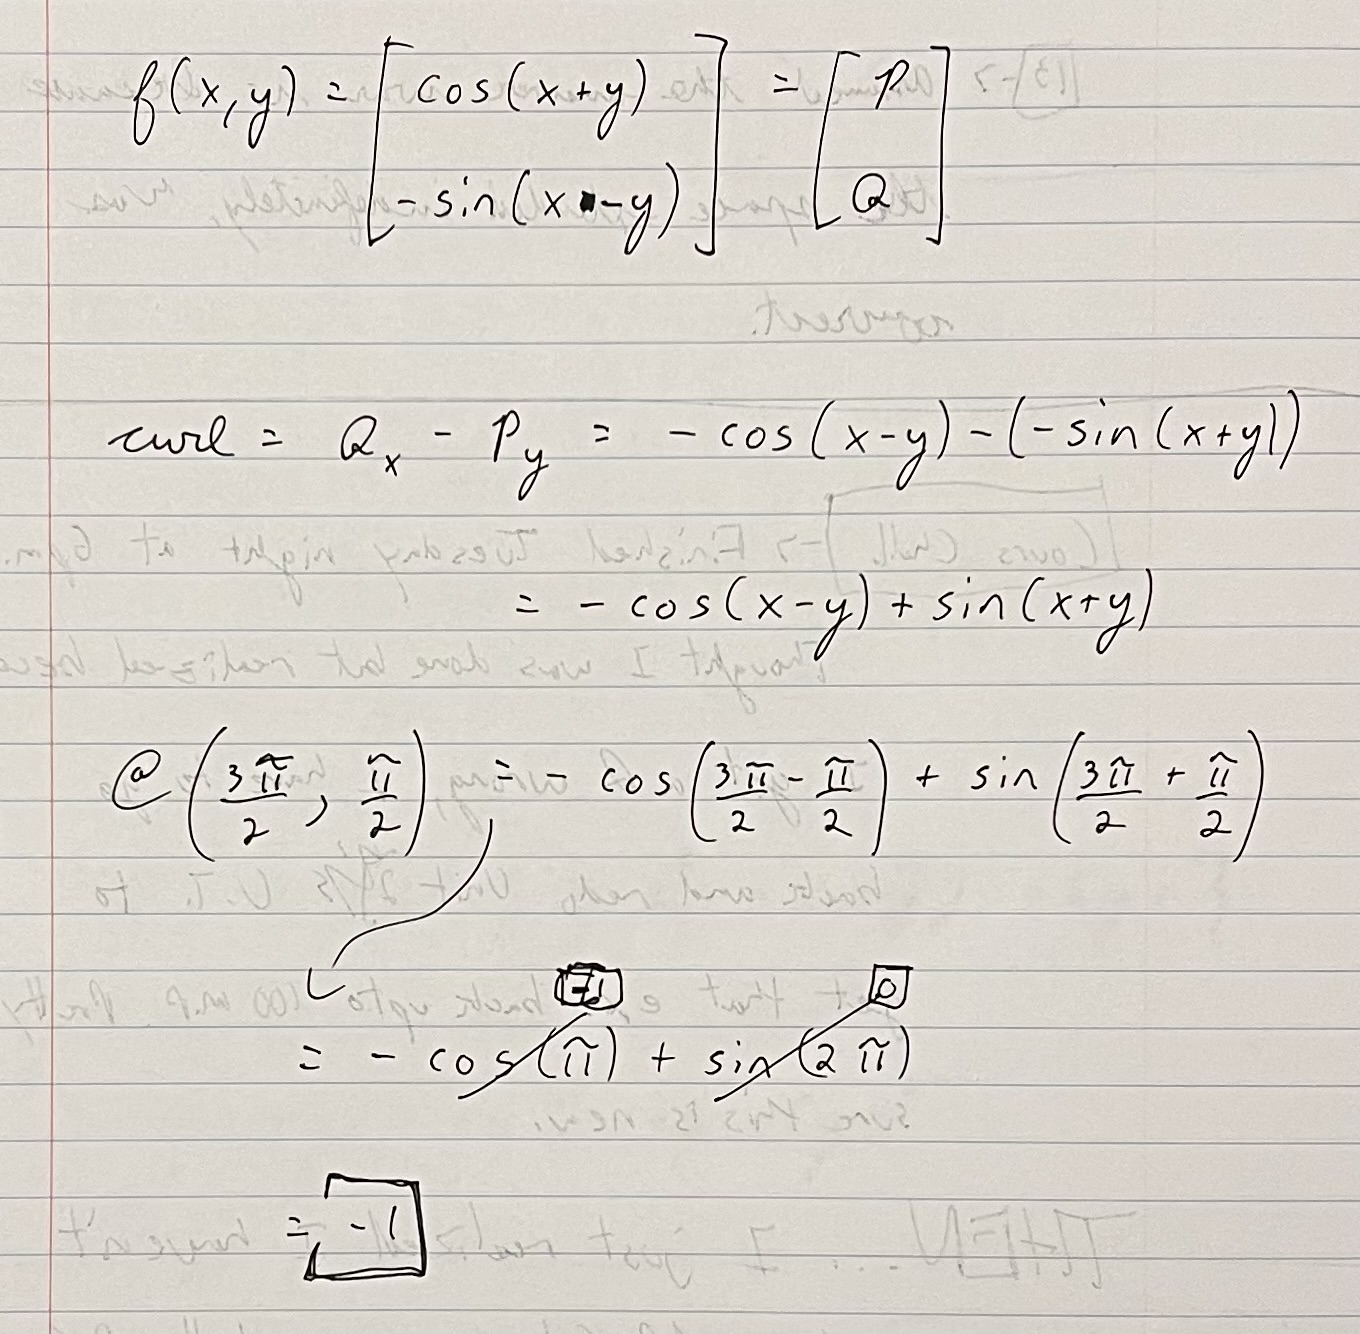 f(x,y) = [cos(x+y) -sin(x-y)] = [P Q]
curl = Qx - Py = -cos(x-y) - (-sin(x+y))
= -cos(x-y) + sin(x+y)
@ (3π/2, π/2) = -cos(3π/2 - π/2) + sin(3π/2 + π/2)
-1 0
= -cos(π) + sin(2π)
= -1